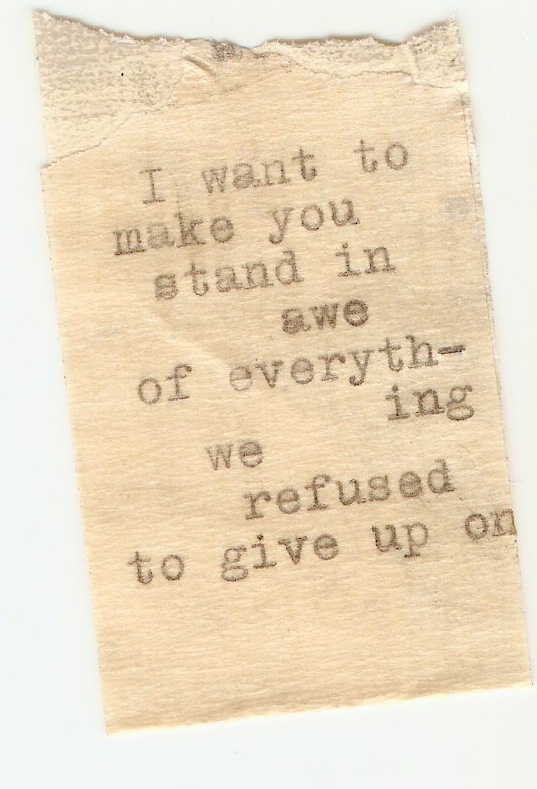 I want to
make you
stand in
awe
of everyth-
ing
we
refused
to give up on